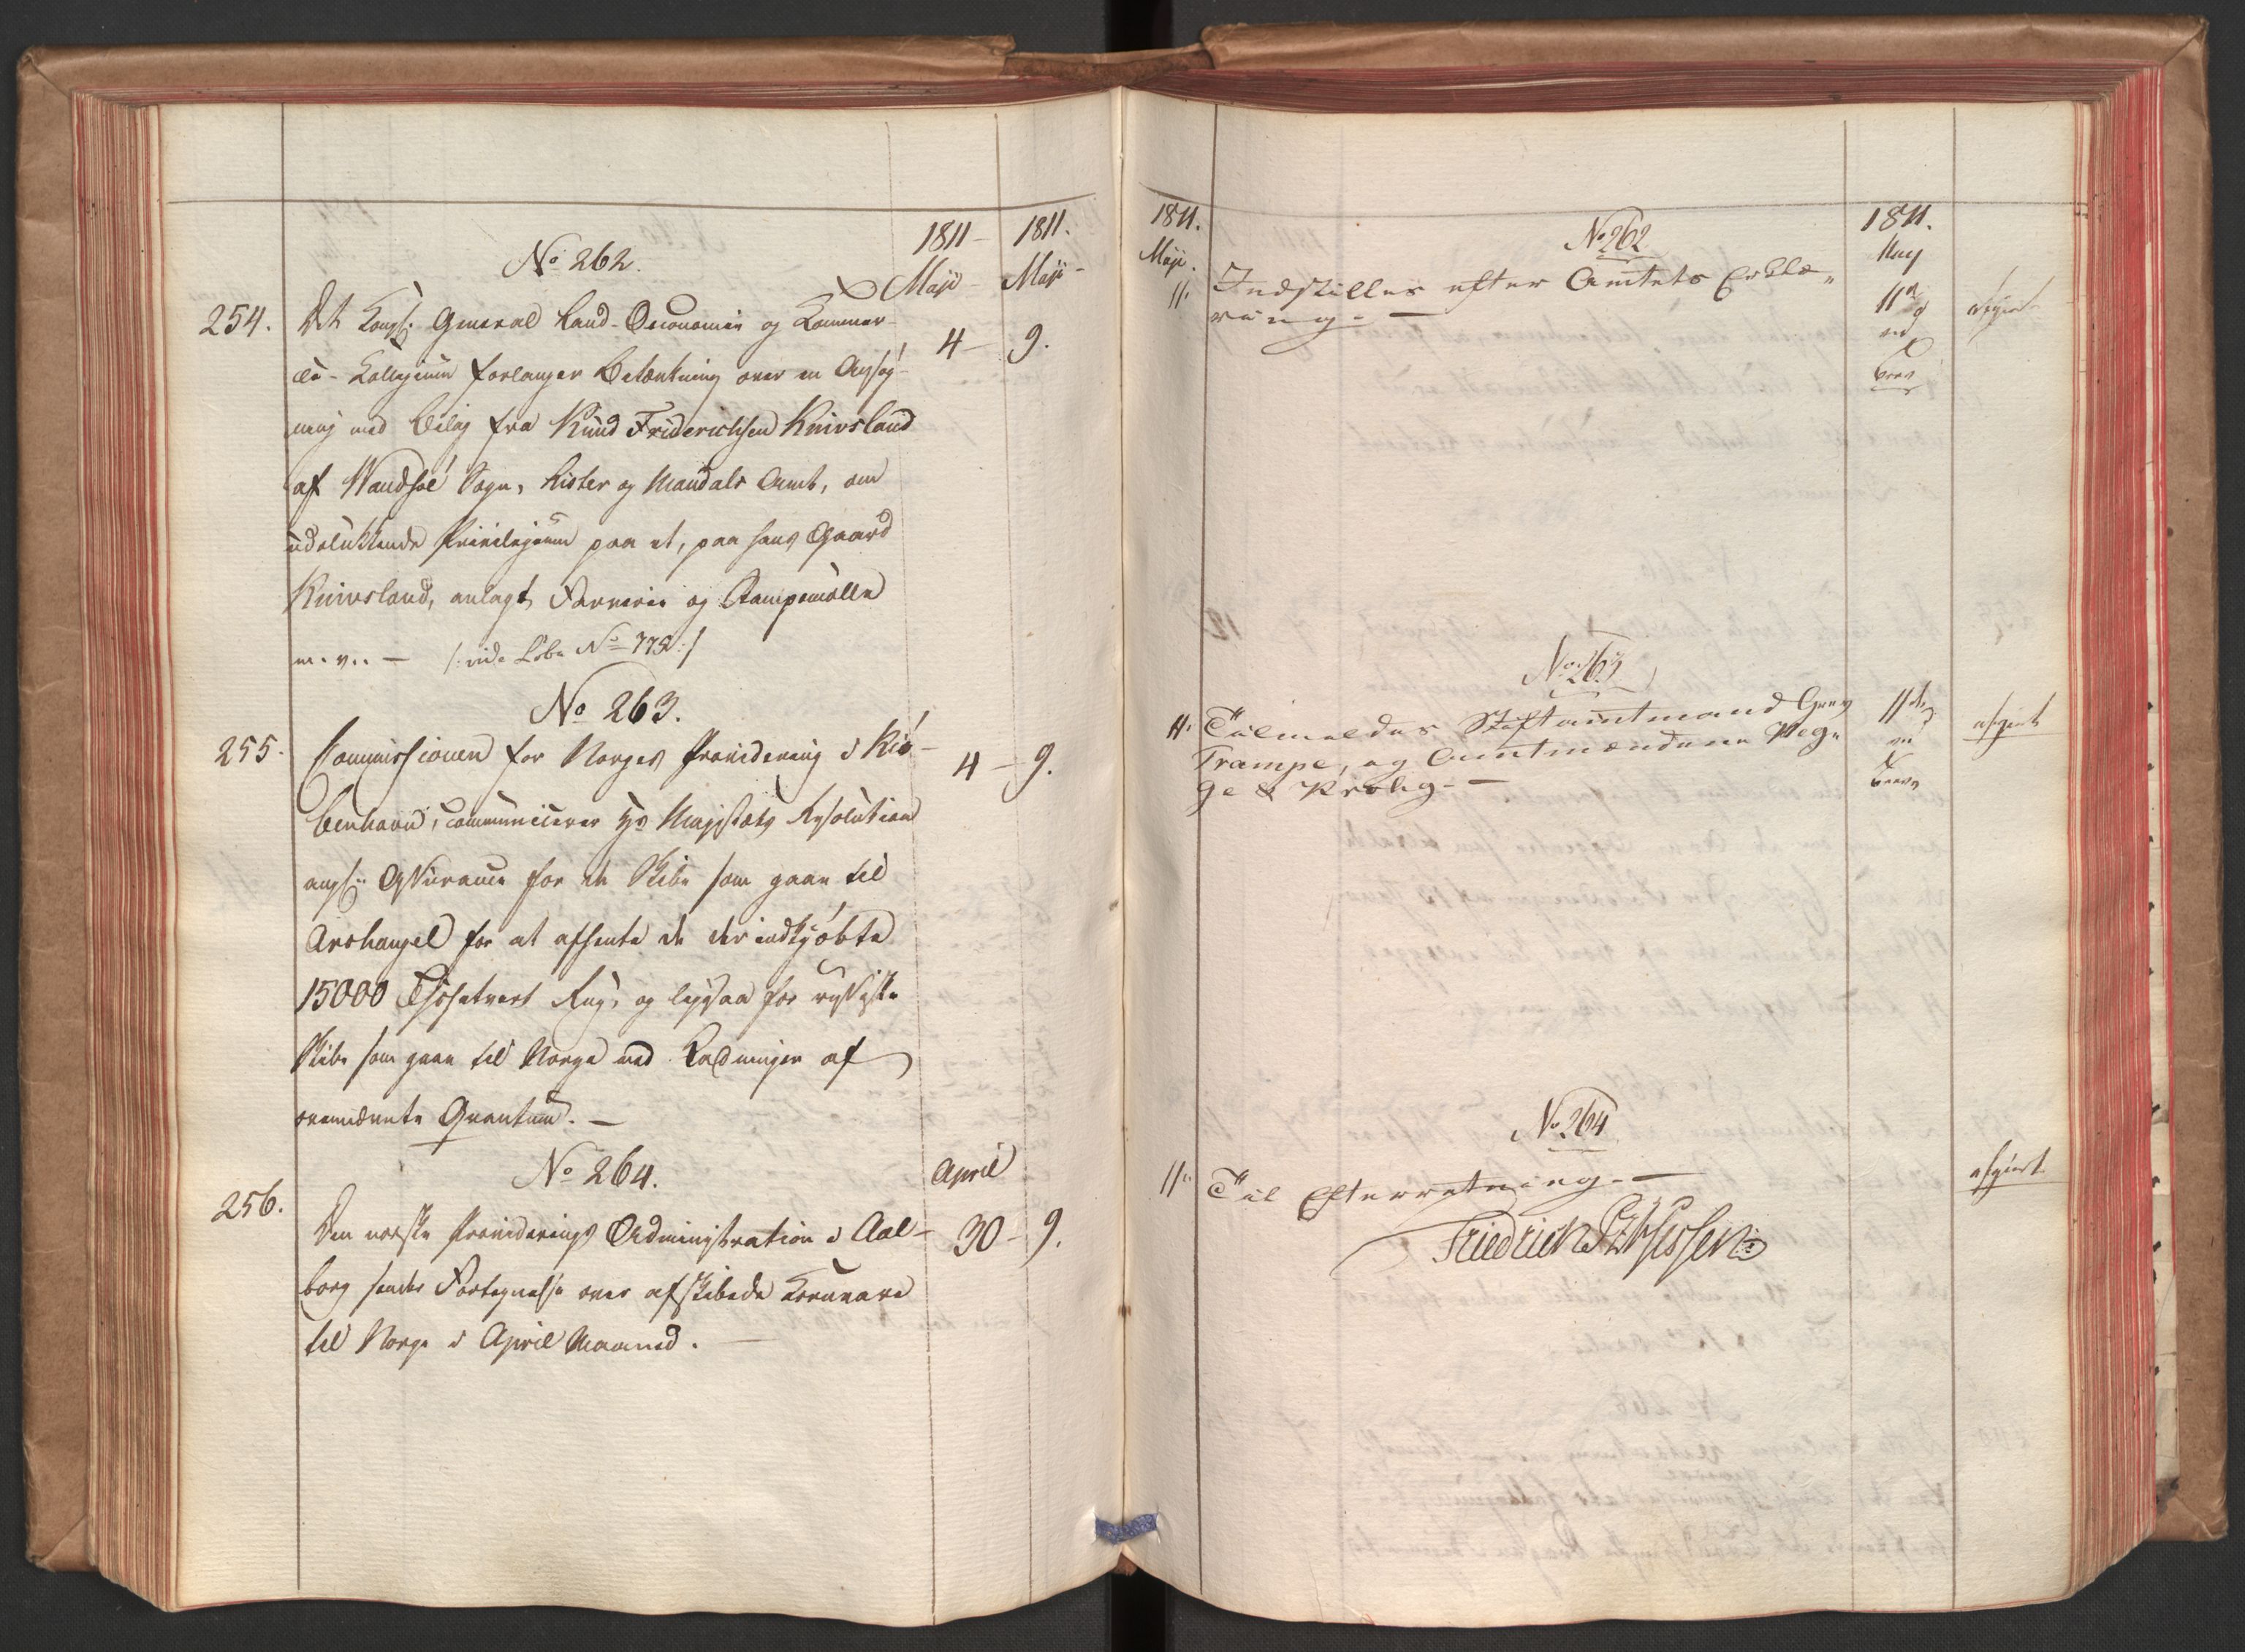 1811 – 1811.
No 262. Maji – Maji –
254. Det Kongl: General Land-Oeconomie og Kommer-
4 – 9.
ce-Collegium forlanger Betænkning over en Ansøg-
ning med Bilag fra Knud Friderichsen Knivsland
af Wandsøe Sogn, Lister og Mandals Amt, om
udelukkende Privilegium paa et, paa hans Gaard
Knivsland, anlagt Farverie og Stampemølle
m. v.. – /: vide Lbe No 775 :/
No 263.
255. Commissionen for Norges Providering i Kiø-
4 – 9.
benhavn, communicerer Hs Majestæts Resolution
angl: Assurance for de Skibe som gaae til
Archangel for at afhente de der indkjøbte
15000 Tschetvert Rug, og ligesaa for russiske
Skibe som gaae til Norge med Ladninger af
ovennævnte Qvantum. –
No 264. April
256. Den norske Providerings Administration i Aal-
30 – 9.
borg sender Fortegnelse over afskibede Kornvare
til Norge i April Maaned. –
1811. No 262 1811.
Maji. May
11. Indstilles efter Amtets Erklæ-
11te afgiort
ring. –
ved
Brev
No 263
11. Tilmeldes Stiftamtmand Grev
11te afgiort
Trampe, og Amtmændene Weg-
ved
ge & Krohg. –
Breve
No 264
11. Til Efterretning. – afgiort
Friedrich